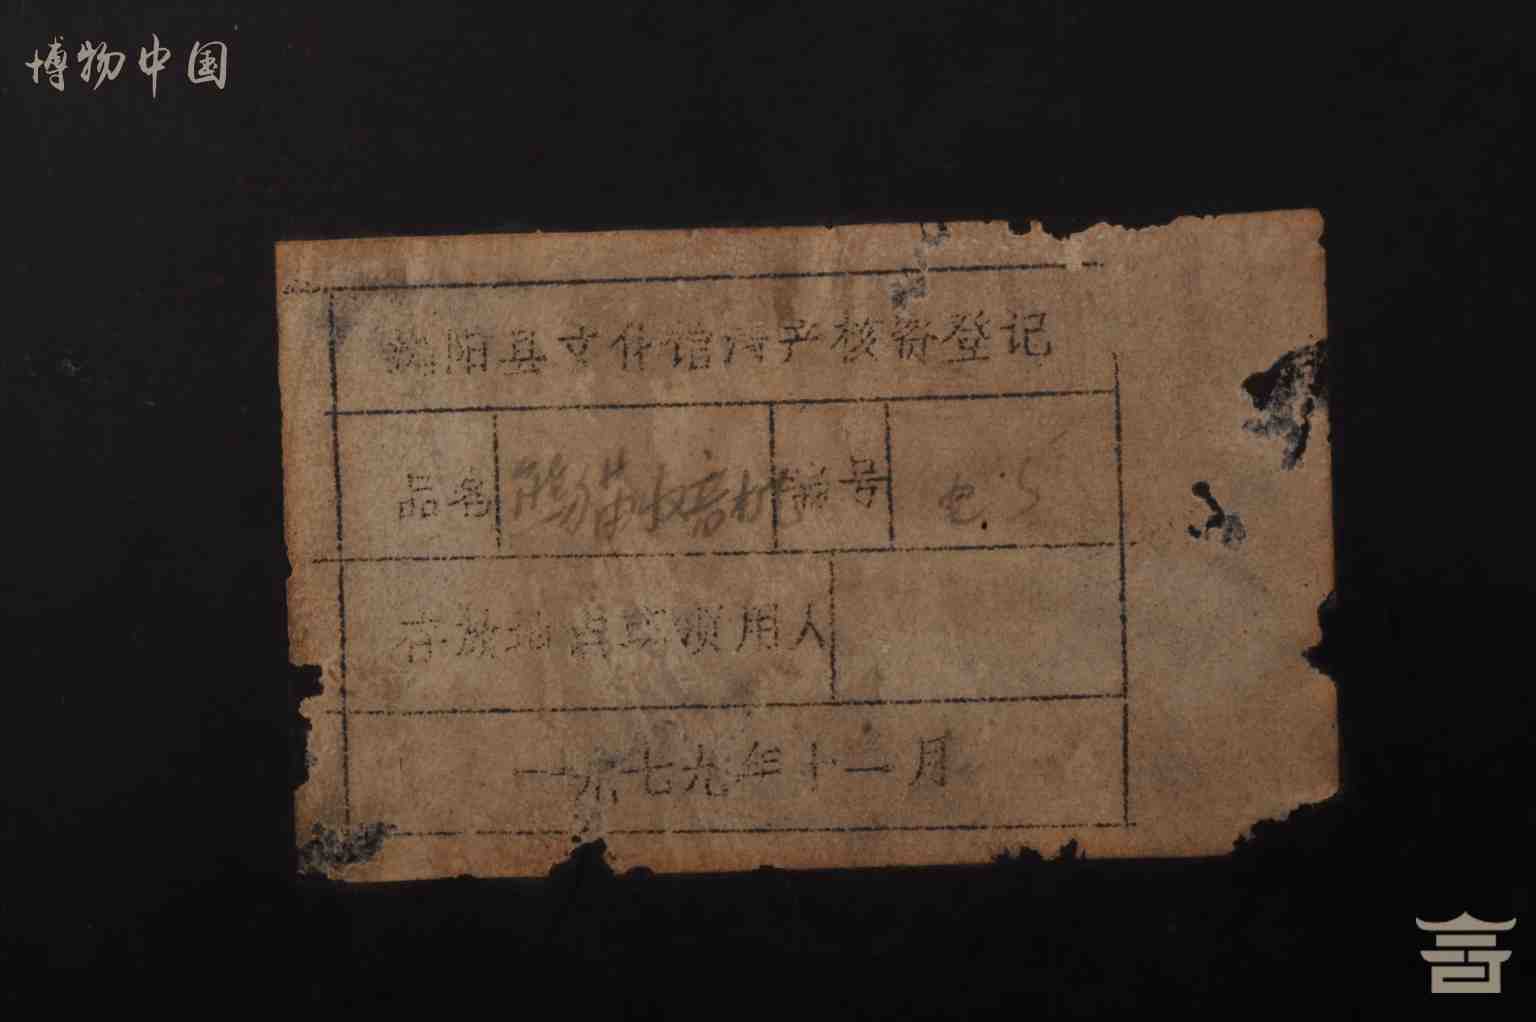 博物中国
浏阳县文化馆清产核资登记
品名 熊猫收音机 编号 电.5
存放地点或领用人
一九七九年十二月